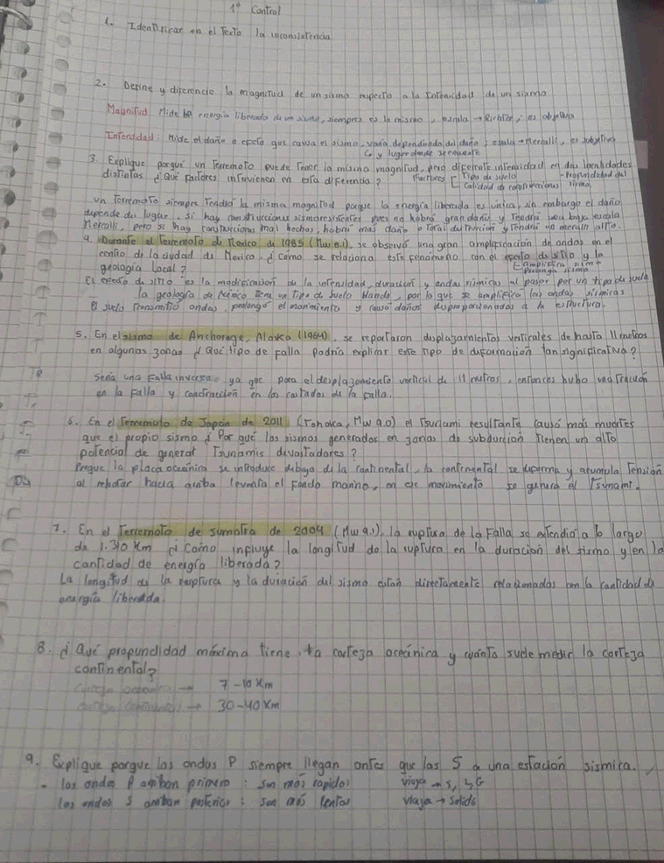 1° Control
1. Identificar en el Texto la inconsistencia
2. Define y diferencie la magnitud de un sismo respecto a la Intensidad de un sismo
Magnitud: Mide la energía liberada de un sismo, siempres es la misma, escala → Richter, es objetiva
Intensidad: Mide el daño o efecto que causa el sismo, varia dependiendo del daño, escala → Mercalli, es subjetiva
y lugar donde se encuentre
3. Explique porqué un Terremoto puede Tener la misma magnitud, pero diferente intensidad en dos localidades
distintas ¿Qué factores intervienen en esta diferencia? Factores [ Tipo de suelo - Profundidad del
Calidad de construcciones sismo
un Terremoto siempre Tendra la misma magnitud porque la energía liberada es unica, sin embargo el daño
depende du lugar, si hay construcciones sismoresistentes pues no habra gran daño y Tendra una baja escala
Mercalli, pero si hay construcciones mal hechas, habra mas daño o Total destruccion y Tendra un mercalli alto.
4. Durante el Terremoto de Mexico de 1985 (Mw 8.1), se observó una gran amplificación de ondas en el
centro de la ciudad de Mexico. ¿Como se relaciona este fenomeno con el efecto de sitio y la
geologia local? [ Amplifica sismo
Prolonga sismo
El efecto de sitio es la modificacion de la intensidad, duracion y ondas sismicas al pasar por un tipo de suelo
la geología de México Tenia un Tipo de suelo blando, por lo que se amplifico las ondas sismicas
El suelo Transmitio ondas, prolongo el movimiento y causo daños desproporcionados a la estructura.
5. En el sismo de Anchorage, Alaska (1964), se reportaron desplazamientos verticales de hasta 11 metros
en algunas zonas ¿Qué tipo de falla podría explicar este tipo de deformación tan significativa?
Seria una Falla inversa, ya que para el desplazamiento vertical de 11 metros, entonces hubo una Tracción
en la falla y contracción en los costados de la falla.
6. En el Terremoto de Japón de 2011 (Tohoku, Mw 9.0) el Tsunami resultante causó más muertes
que el propio sismo ¿Por qué los sismos generados en zonas de subducción Tienen un alto
potencial de generar Tsunamis devastadores?
Porque la placa oceánica se introduce debajo de la continental, la continental se deforma y acumula Tensión
al rebotar hacia arriba levanta el fondo marino, en ese movimiento se genera el Tsunami.
7. En el Terremoto de sumatra de 2004 (Mw 9.1), la ruptura de la Falla se extendio a lo largo
de 1.310 Km ¿Cómo influye la longitud de la ruptura en la duracion del sismo y en la
cantidad de energía liberada?
La longitud de la ruptura y la duración del sismo estan directamente relacionadas con la cantidad de
energía liberada.
8. ¿Qué profundidad máxima tiene la corteza oceánica y cuánto suele medir la corteza
continental?
corteza oceanica → 7-10 Km
corteza continental → 30-40 Km
9. Explique porque las ondas P siempre llegan antes que las S a una estación sísmica.
- las ondas P arriban primero : son más rapidas viaja → S, L, G
las ondas S arriban posterior : son más lentas viaja → solido